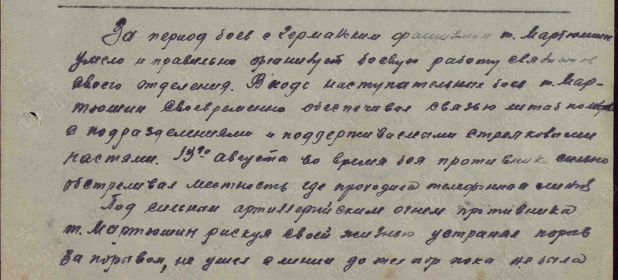 За период боев с Германским фашизмом т. Мартюшин
умело и правильно организует боевую работу связистов
своего отделения. В ходе наступательных боев т. Мар-
тюшин своевременно обеспечивал связью штаб полка
а подразделениями и поддерживаемыми стрелковыми
частями. 19го августа во время боя противник сильно
обстреливал местность где проходила телефонная линия
Под сильным артиллерийским огнем противника
т. Мартюшин рискуя своей жизнью устранял порыв
за порывом, не ушел с линии до тех пор пока не была